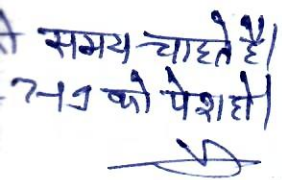 समय चाहते हैं।
को पेश हो।